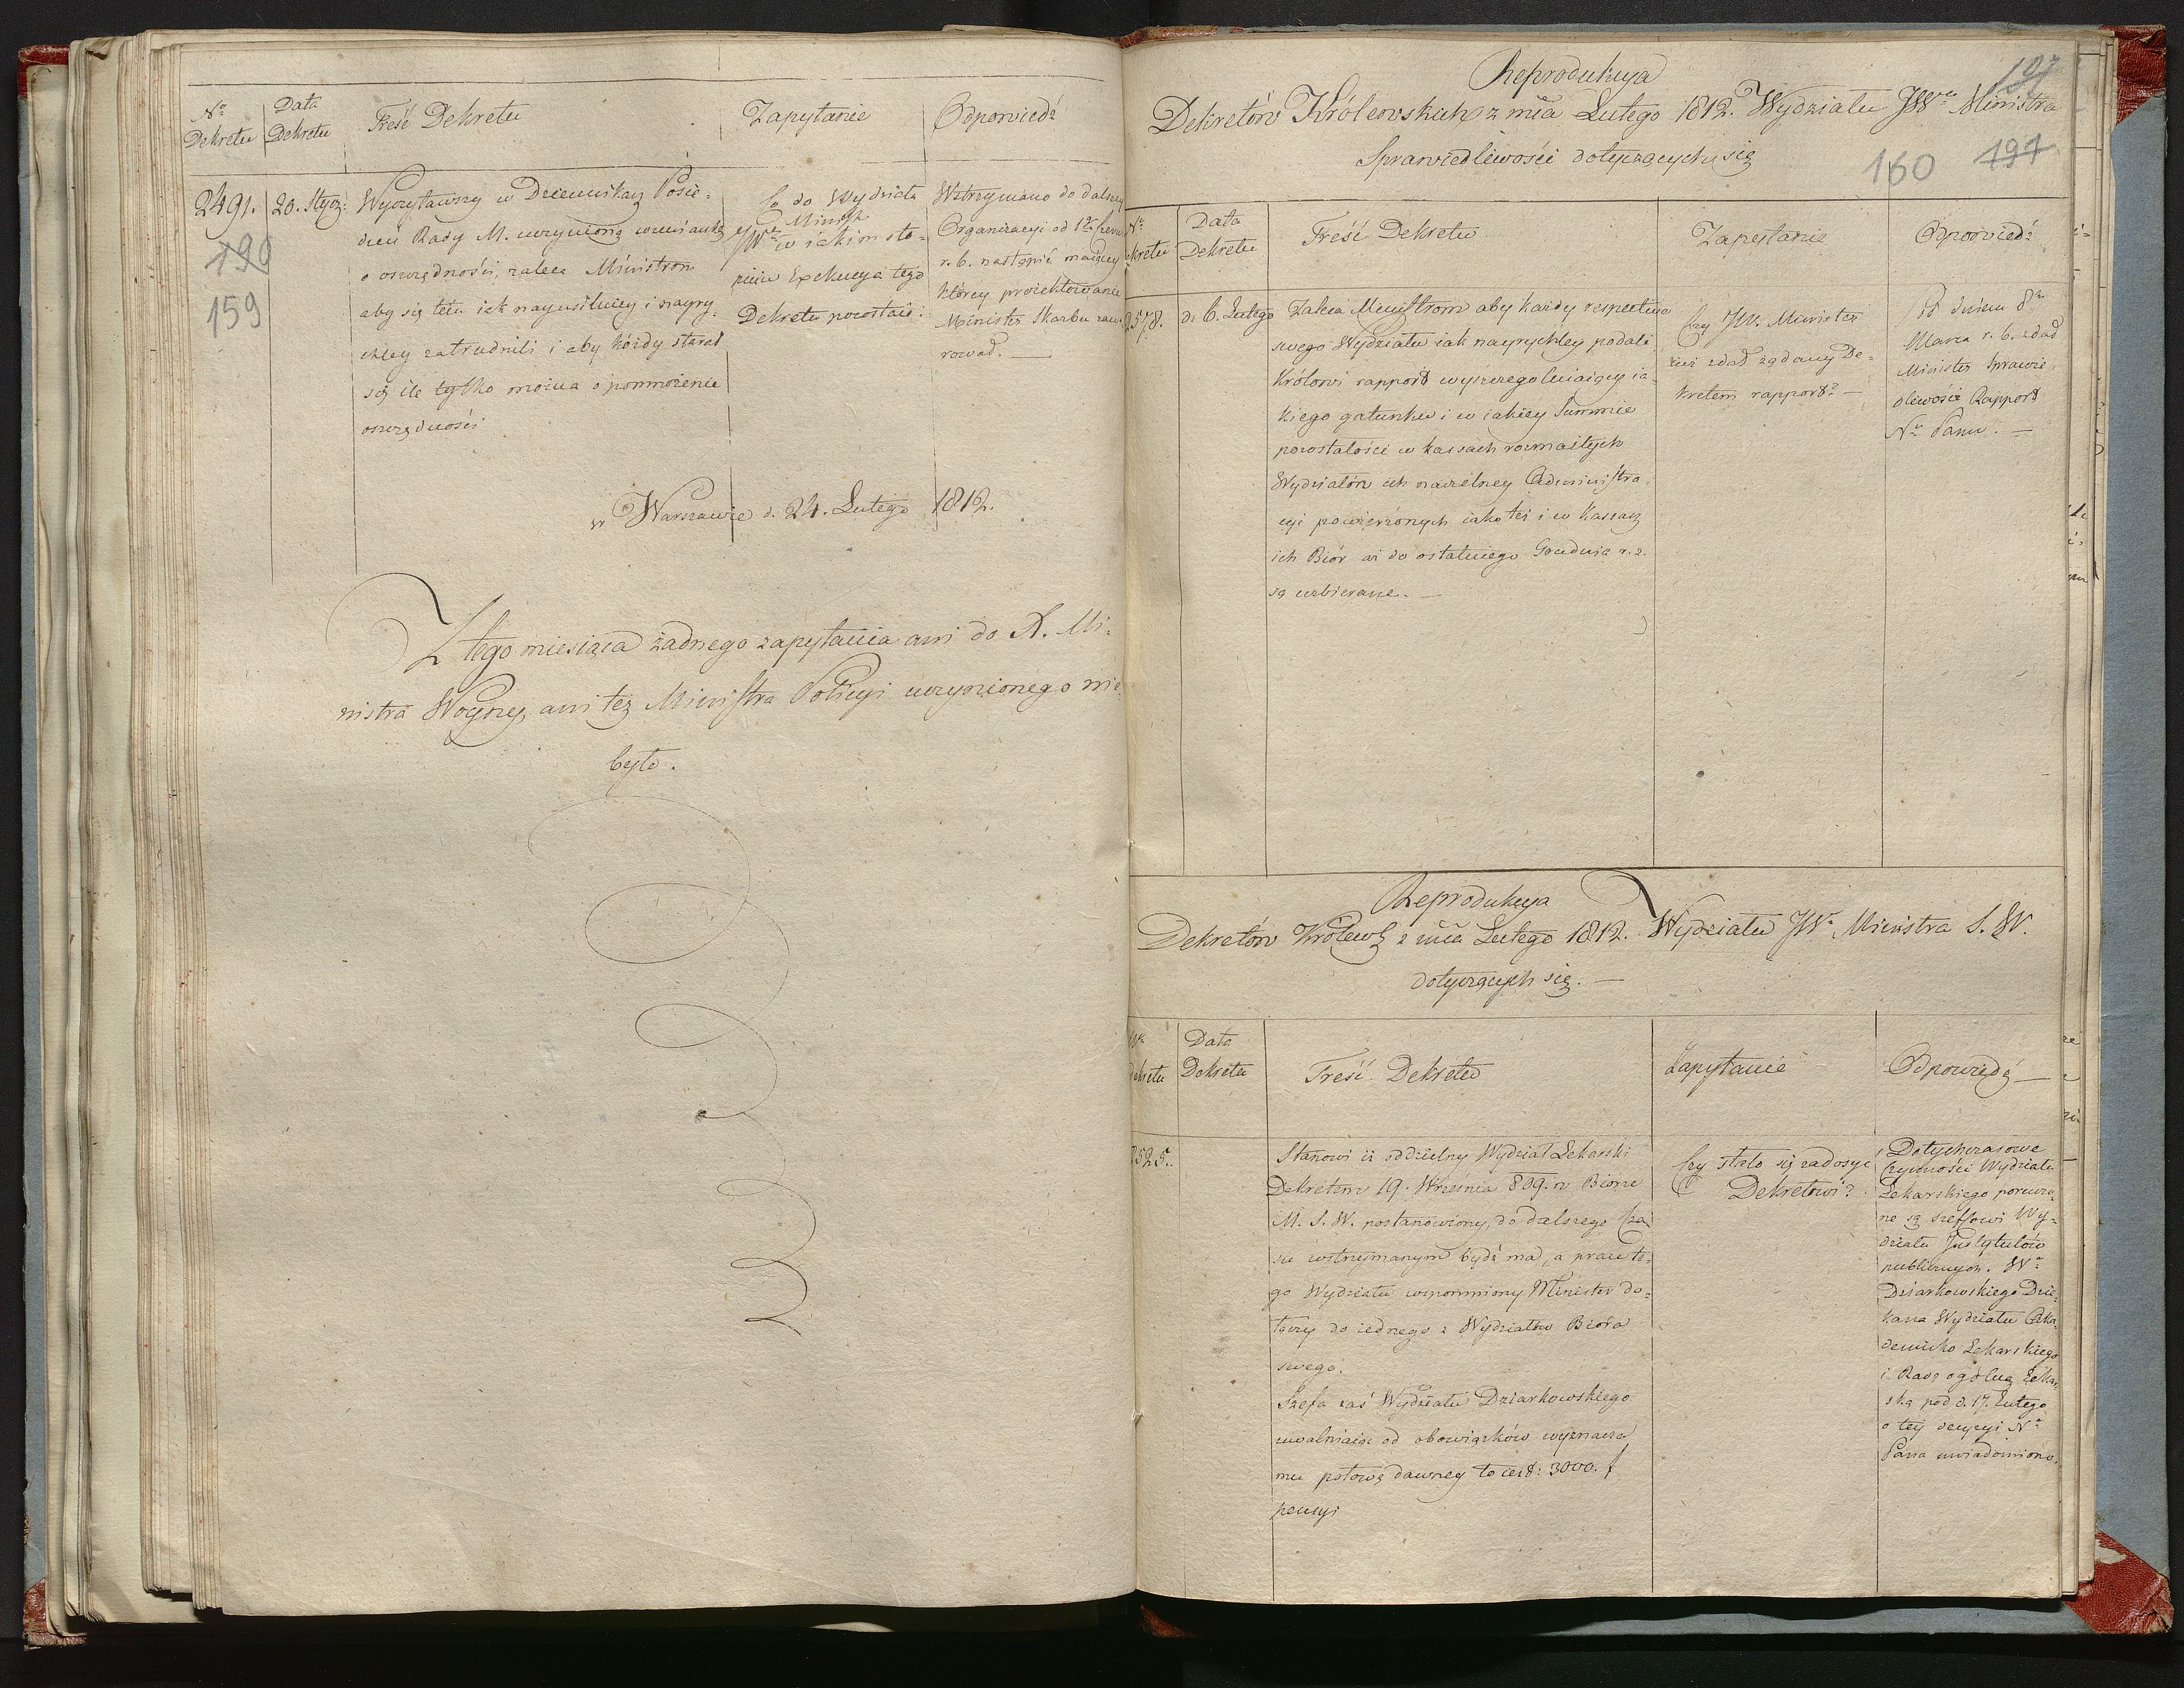 Nro Dekretu
Data Dekretu
Treść Dekretu
Zapytanie
Odpowiedź
2491.
190
159
20. Stycz:
Wyczytawszy w Dziennikach Posie-
dzeń Rady M. uczynioną wzmiankę
o oszczędności, zaleca Ministrom
aby się tém iak nayusilniey i nayry-
chley zatrudnili i aby każdy starał
się ile tylko można o pomnożenie
oszczędności
Co do Wydziału
JWgo Ministra
w iakim sto-
pniu Exekucya tego
Dekretu pozostaie.
Wstrzymano do dalszey
Organizacyi od 1go Czerw
r. b. nastąpić maiącey
którey proiektowanie
Minister Skarbu
rował. —
w Warszawie d. 24. Lutego 1812.
Z tego miesiąca żadnego zapytania ani do X. Mi-
nistra Woyny, ani też Ministra Policyi uczynionego nie
było.
107
Reprodukcya
Dekretów Królewskich z mca Lutego 1812. Wydziału JWgo Ministra
Sprawiedliwości dotyczących się
160 191
Nro
kretu
Data
Dekretu
Treść Dekretu
Zapytanie
Odpowiedź
2578.
d. 6. Lutego
Zaleca Ministrom aby każdy respective
swego Wydziału iak nayrychley podali
Królowi rapport wyszczególniaiący ia-
kiego gatunku i w iakiey Summie
pozostałości w kassach rozmaitych
Wydziałów ich naczelney Administra-
cyi powierzonych iako też i w Kassach
ich Biór aż do ostatniego Grudnia r. z.
są uzbierane. —
Czy JW. Minister
iuż zdał żądany De-
kretem rapport? —
Pod dniem 8m
Marca r. b. zdał
Minister Sprawie-
dliwości Rapport
Nu Panu. —
Reprodukcya
Dekretów Królewch z mca Lutego 1812. Wydziału JWo Ministra S. W.
dotyczących się. —
Nro
dekretu
Data
Dekretu
Treść Dekretu
Zapytanie
Odpowiedź —
2525.
Stanowi iż oddzielny Wydział Lekarski
Dekretem 19. Września 809. w Biórze
M. S. W. postanowiony, do dalszego Cza-
su wstrzymanym bydź ma, a prace te-
go Wydziału wspomniony Minister do-
łączy do iednego z Wydziałów Bióra
swego.
Szefa zaś Wydziału Dziarkowskiego
uwalniaiąc od obowiązków wyznacza
mu połowę dawney to iest: 3000. f
pensyi
Czy stało się zadosyć
Dekretowi?
Dotychczasowe
Czynności Wydziału
Lekarskiego poruczo-
ne są szeffowi Wy-
działu Instytutów
publicznych. Wo
Dziarkowskiego Dzie-
kana Wydziału Aka-
demicko Lekarskiego
i Radę ogólną Lekar-
ską pod d. 17. Lutego
o tey decyzyi No
Pana uwiadomiono.